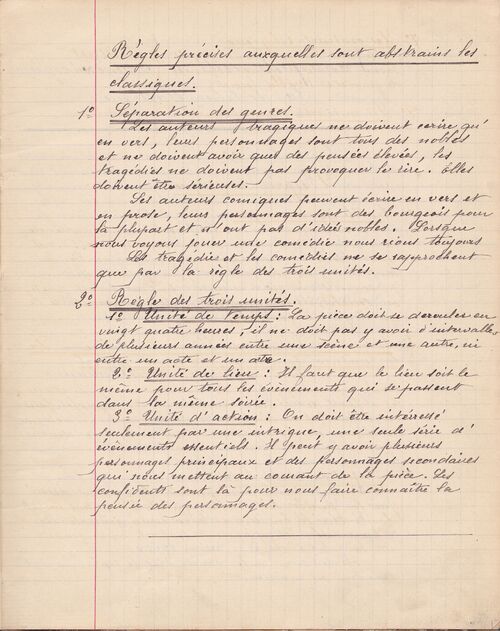 Règles précises auxquelles sont abstrains les
classiques.
1º Séparation des genres.
Les auteurs tragiques ne doivent écrire qu'
en vers, leurs personnages sont tous des nobles
et ne doivent avoir que des pensées élevées, les
tragédies ne doivent pas provoquer le rire. Elles
doivent être sérieuses.
Les auteurs comiques peuvent écrire en vers et
en prose, leurs personnages sont des bourgeois pour
la plupart et n'ont pas d'idées nobles. Lorsque
nous voyons jouer une comédie nous rions toujours
La tragédie et les comédies ne se rapprochent
que par la règle des trois unités.
2º Règle des trois unités.
1º Unité de temps : La pièce doit se dérouler en
vingt quatre heures, il ne doit pas y avoir d'intervalles
de plusieurs années entre une scène et une autre, ni
entre un acte et un acte.
2º Unité de lieu : Il faut que le lieu soit le
même pour tous les évènements qui se passent
dans la même soirée.
3º Unité d'action : On doit être intéressé
seulement par une intrigue, une seule série d'
évènements essentiels. Il peut y avoir plusieurs
personnages principaux et des personnages secondaires
qui nous mettent au courant de la pièce. Les
confidents sont là pour nous faire connaître la
pensée des personnages.